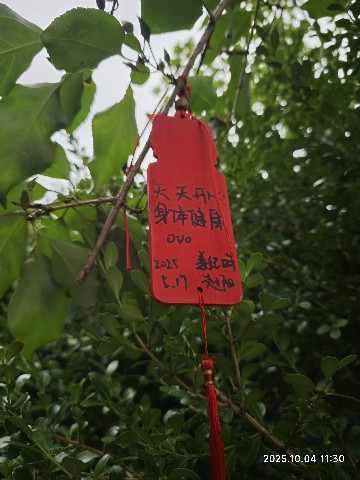 天天开心
身体健康
OVO
2025
5.17
2025.10.04 11:30